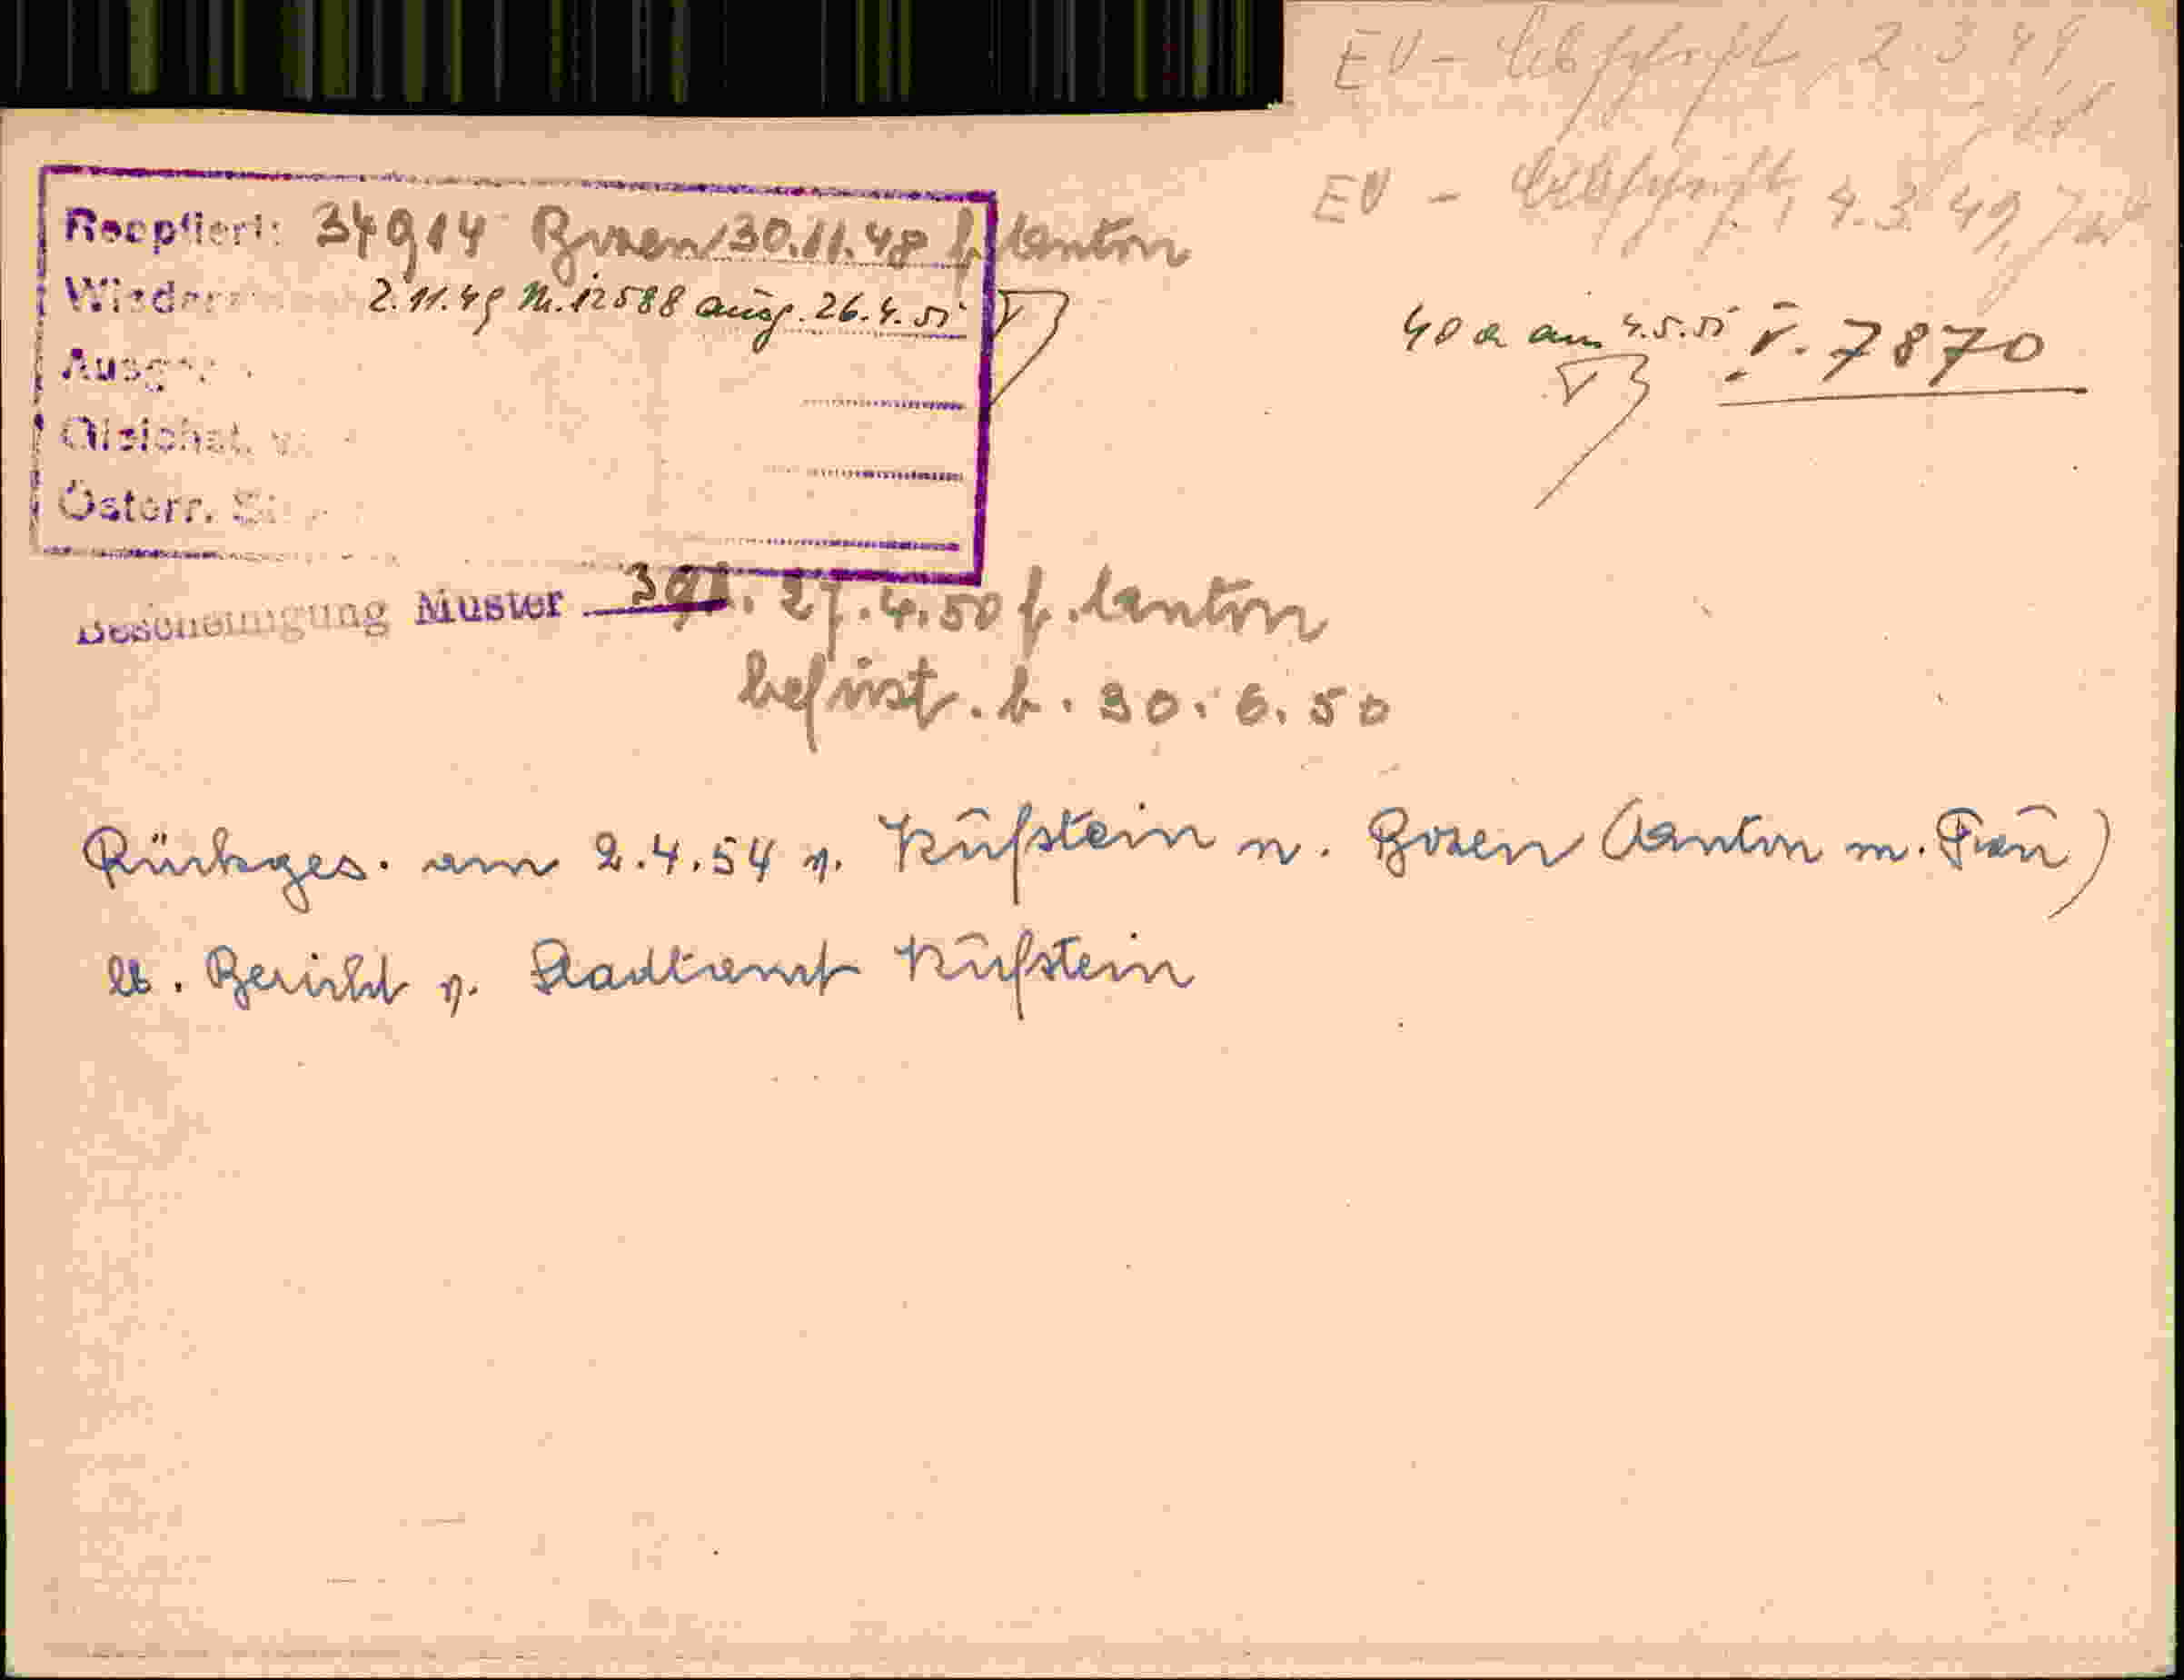 EV - Abschrift, 2.3.49,
EV - Abschrift, 4.3.49,
Reoptiert: 34914 Bozen 30.11.48 f. Anton
Wieder 2.11.49 Nr. 12588 ausg. 26.4.51
40 a am 4.5.51 v. 7870
Ausge
Gleichst. v.
Österr. St
Bescheinigung Muster 391. 27.4.50 f. Anton
befrist. b. 30.6.50
Rückges. am 2.4.54 v. Kufstein n. Bozen (Anton m. Frau)
lt. Bericht v. Stadtamt Kufstein